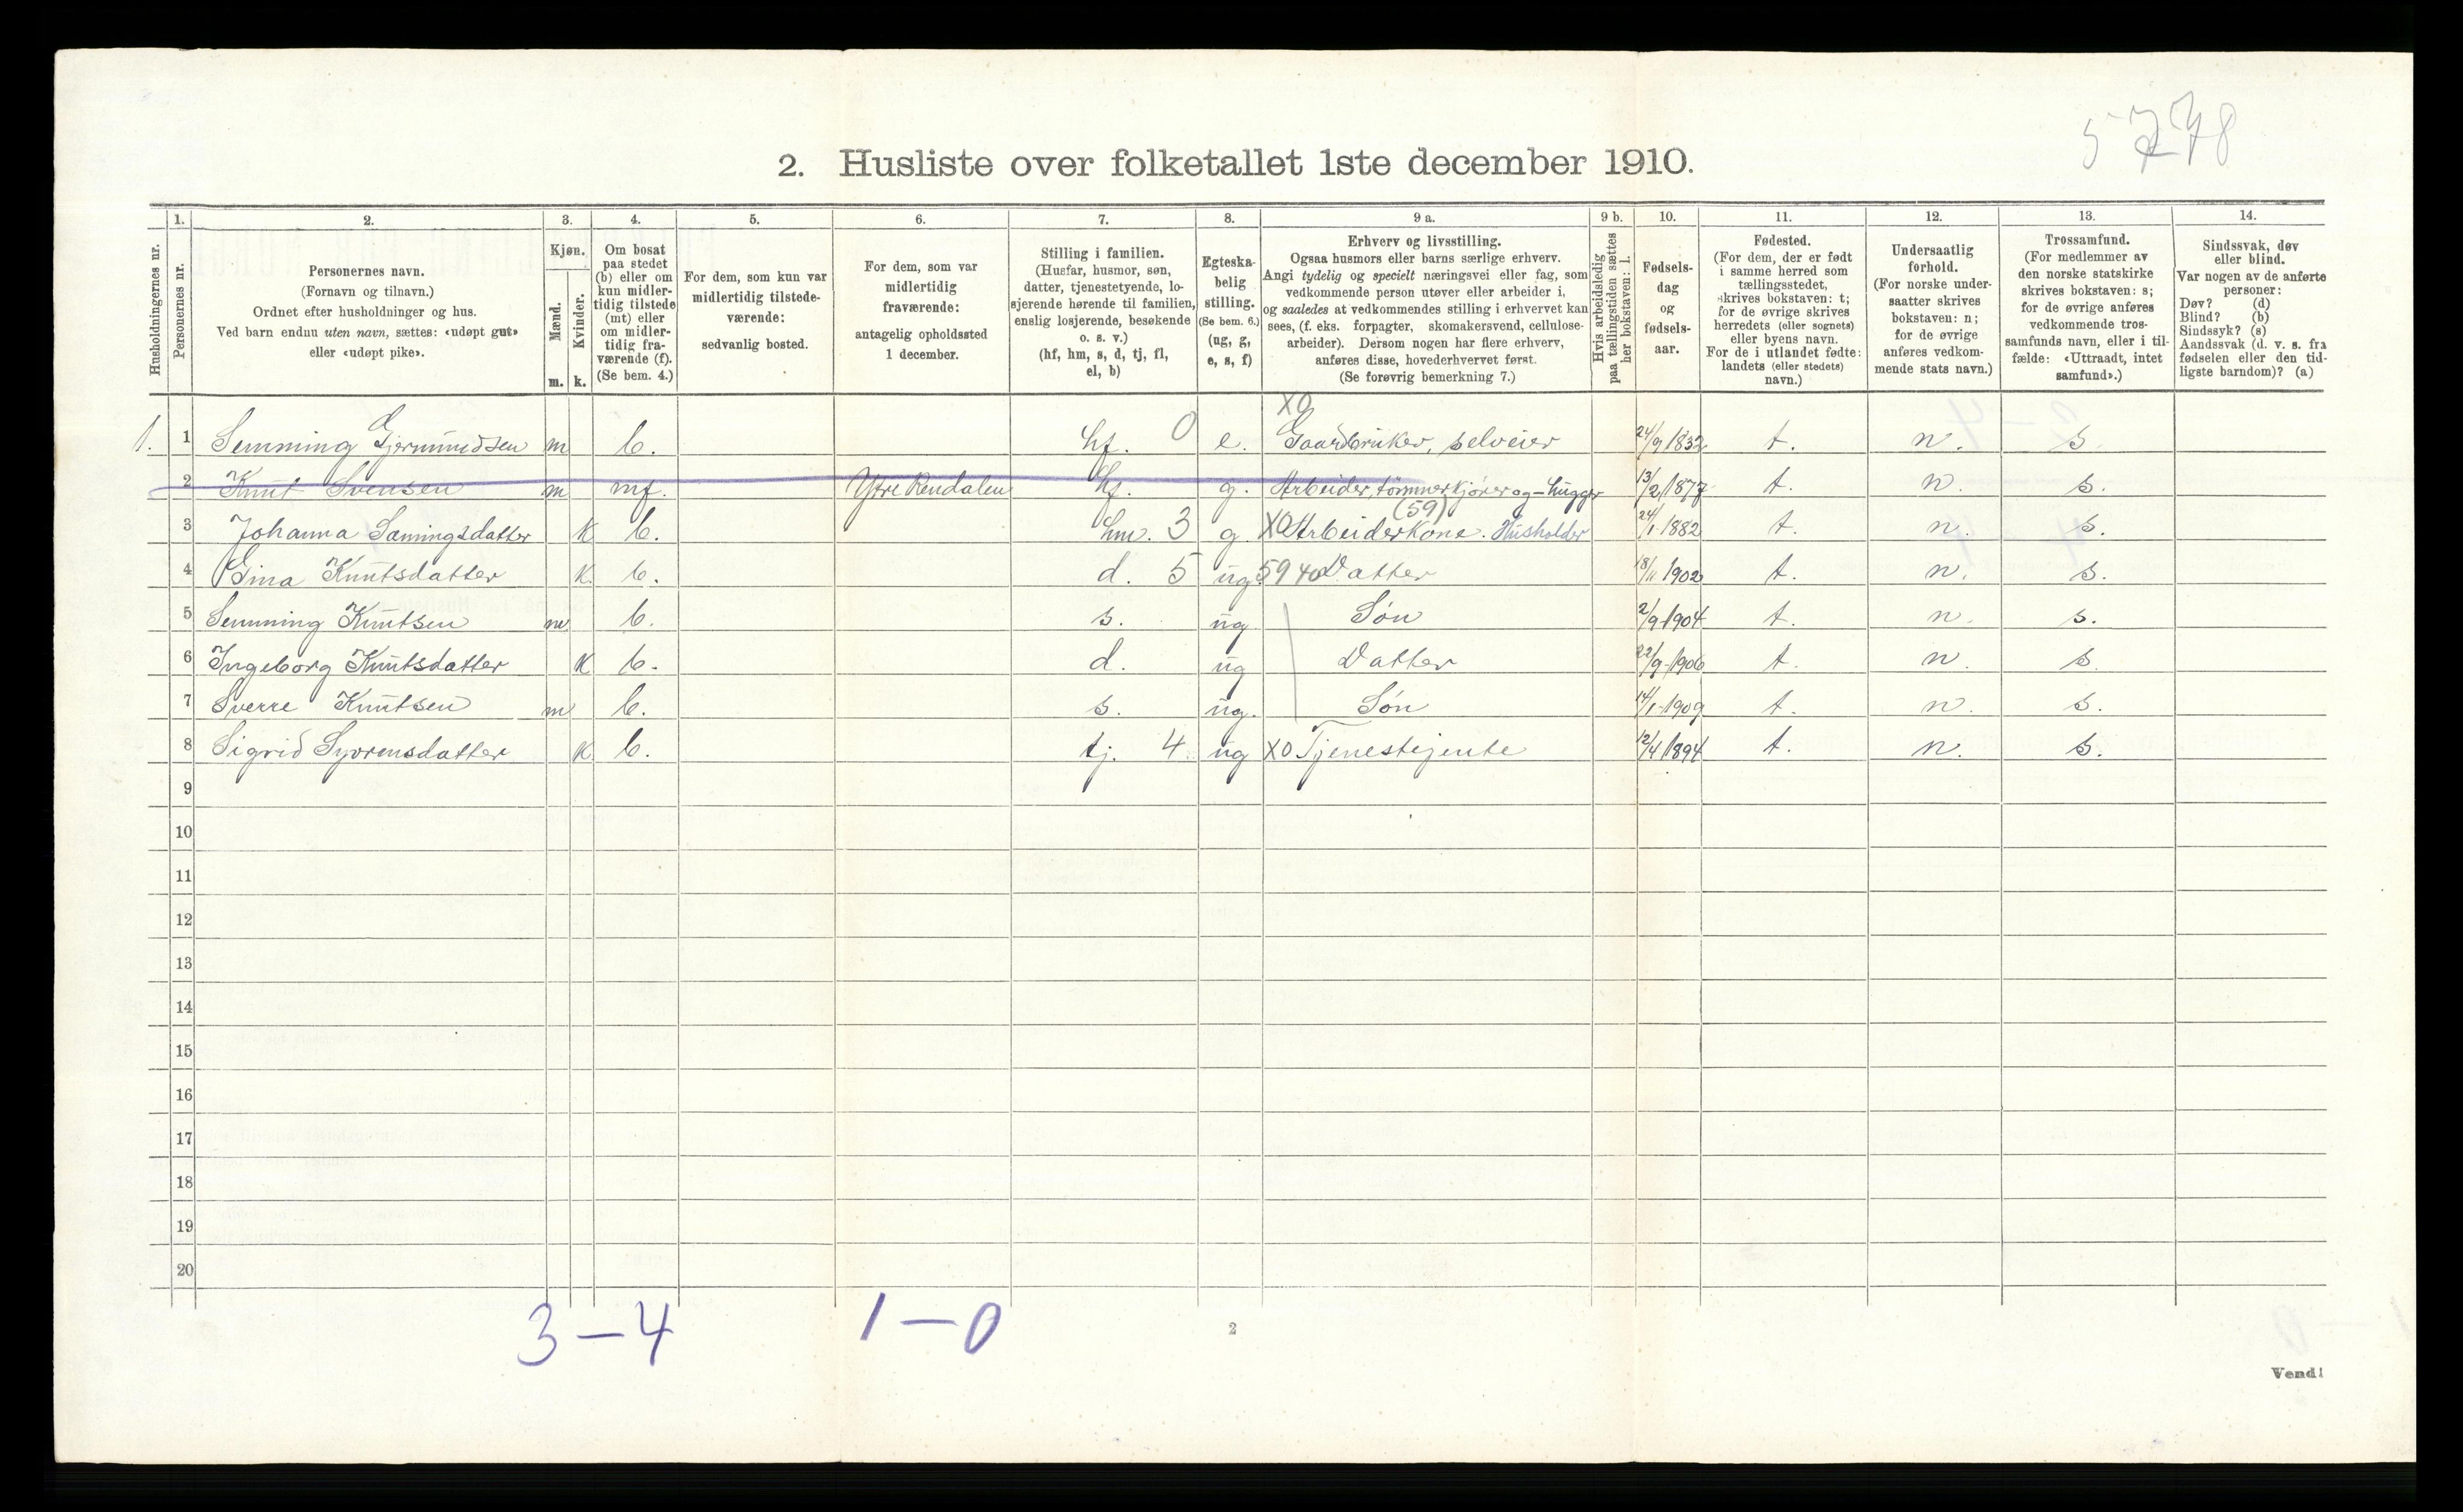 5778
2. Husliste over folketallet 1ste december 1910.
Husholdningernes nr.
1.
Personernes nr.
2.
Personernes navn.
(Fornavn og tilnavn.)
Ordnet efter husholdninger og hus.
Ved barn endnu uten navn, sættes: «udøpt gut»
eller «udøpt pike».
3.
Kjøn.
Mænd.
Kvinder.
m. k.
4.
Om bosat
paa stedet
(b) eller om
kun midler-
tidig tilstede
(mt) eller
om midler-
tidig fra-
værende (f).
(Se bem. 4.)
5.
For dem, som kun var
midlertidig tilstede-
værende:
sedvanlig bosted.
6.
For dem, som var
midlertidig
fraværende:
antagelig opholdssted
1 december.
7.
Stilling i familien.
(Husfar, husmor, søn,
datter, tjenestetyende, lo-
sjerende hørende til familien,
enslig losjerende, besøkende
o. s. v.)
(hf, hm, s, d, tj, fl,
el, b)
8.
Egteska-
belig
stilling.
(Se bem. 6.)
(ug, g,
e, s, f)
9 a.
Erhverv og livsstilling.
Ogsaa husmors eller barns særlige erhverv.
Angi tydelig og specielt næringsvei eller fag, som
vedkommende person utøver eller arbeider i,
og saaledes at vedkommendes stilling i erhvervet kan
sees, (f. eks. forpagter, skomakersvend, cellulose-
arbeider). Dersom nogen har flere erhverv,
anføres disse, hovederhvervet først.
(Se forøvrig bemerkning 7.)
9 b.
Hvis arbeidsledig
paa tællingstiden sættes
her bokstaven: l.
10.
Fødsels-
dag
og
fødsels-
aar.
11.
Fødested.
(For dem, der er født
i samme herred som
tællingsstedet,
skrives bokstaven: t;
for de øvrige skrives
herredets (eller sognets)
eller byens navn.
For de i utlandet fødte:
landets (eller stedets)
navn.)
12.
Undersaatlig
forhold.
(For norske under-
saatter skrives
bokstaven: n;
for de øvrige
anføres vedkom-
mende stats navn.)
13.
Trossamfund.
(For medlemmer av
den norske statskirke
skrives bokstaven: s;
for de øvrige anføres
vedkommende tros-
samfunds navn, eller i til-
fælde: «Uttraadt, intet
samfund».)
14.
Sindssvak, døv
eller blind.
Var nogen av de anførte
personer:
Døv? (d)
Blind? (b)
Sindssyk? (s)
Aandssvak (d. v. s. fra
fødselen eller den tid-
ligste barndom)? (a)
X0
1. 1 Semming Gjermundsen m b. hf. 0 e. Gaardbruker, selveier 24/9 1832 t. n. s.
2 Knut Svensen m mf. Ytre Rendalen hf. g. Arbeider, tømmerkjører og -hugger 13/2 1877 t. n. s.
(59)
3 Johanna Sæmingsdatter k b. hm. 3 g. X0 Arbeiderkone. Husholder 24/1 1882 t. n. s.
4 Gina Knutsdatter k. b. d. 5 ug. 59 40 Datter 18/11 1902 t. n. s.
5 Semming Knutsen m b. s. ug Søn 2/9 1904 t. n. s.
6 Ingeborg Knutsdatter k b. d. ug Datter 22/9 1906 t. n. s.
7 Sverre Knutsen m b. s. ug. Søn 14/1 1909 t. n. s.
8 Sigrid Syvensdatter k b. tj. 4 ug X0 Tjenestejente 12/4 1894 t. n. s.
9
10
11
12
13
14
15
16
17
18
19
20
3 — 4 1 — 0
2
Vend!